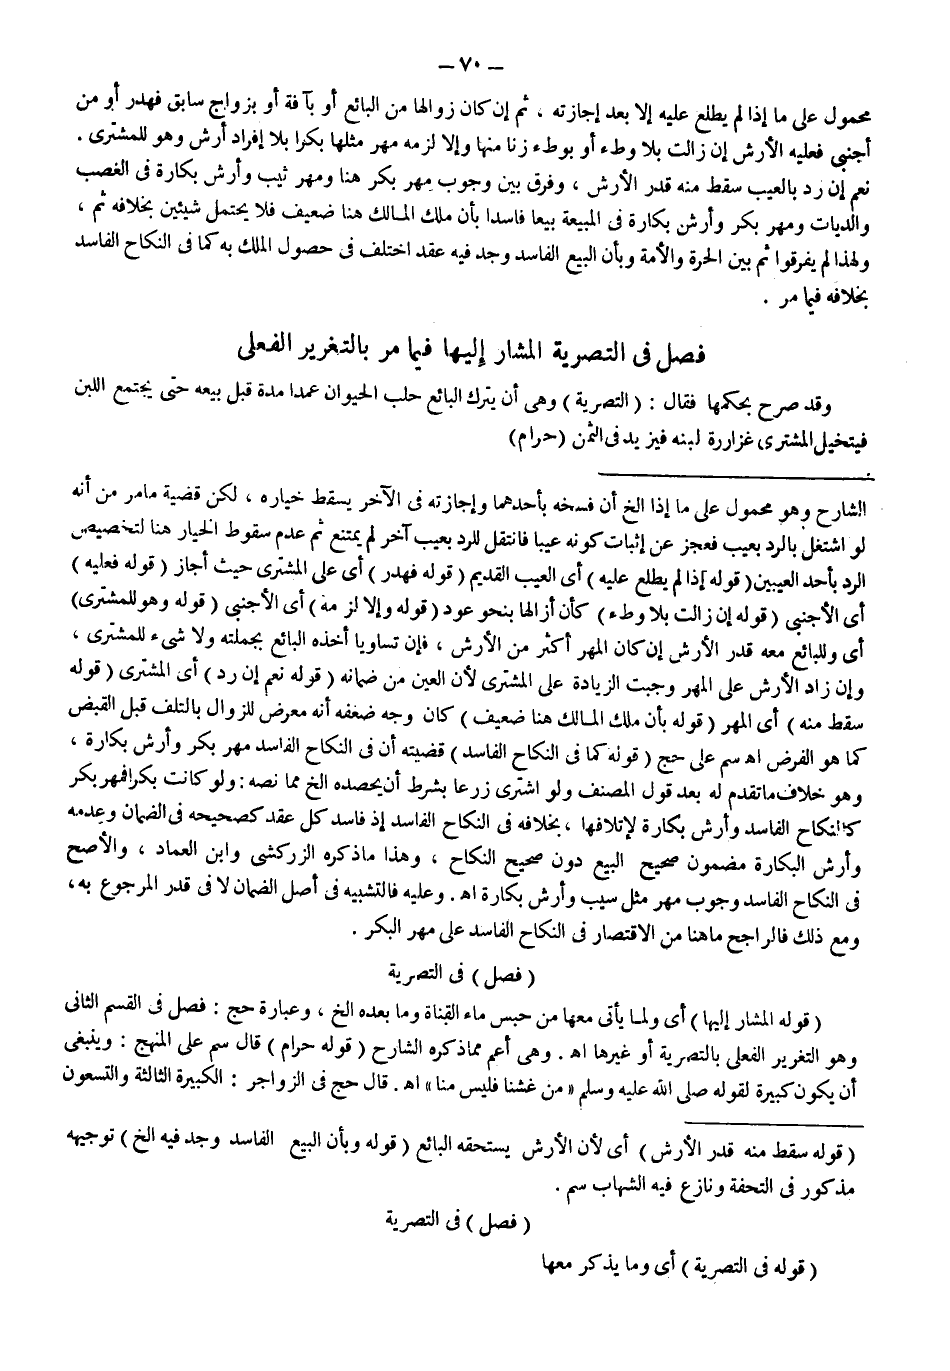 – ٧٠ –
محمول على ما إذا لم يطلع عليه إلا بعد إجازته ، ثم إن كان زوالها من البائع أو بآفة أو بزواج سابق فهدر أو من
أجنبى فعليه الأرش إن زالت بلا وطء أو بوطء زنا منها وإلا لزمه مهر مثلها بكرا بلا إفراد أرش وهو للمشترى .
نعم إن رد بالعيب سقط منه قدر الأرش ، وفرق بين وجوب مهر بكر هنا ومهر ثيب وأرش بكارة فى الغصب
والديات ومهر بكر وأرش بكارة فى المبيعة بيعا فاسدا بأن ملك المالك هنا ضعيف فلا يحتمل شيئين بخلافه ثم ،
ولهذا لم يفرقوا ثم بين الحرة والأمة وبأن البيع الفاسد وجد فيه عقد اختلف فى حصول الملك به كما فى النكاح الفاسد
بخلافه فيما مر .
فصل فى التصرية المشار إليها فيما مر بالتغرير الفعلى
وقد صرح بحكمها فقال : ( التصرية ) وهى أن يترك البائع حلب الحيوان عمدا مدة قبل بيعه حتى يجتمع اللبن
فيتخيل المشترى غزارة لبنه فيزيد فى الثمن (حرام)
الشارح وهو محمول على ما إذا الخ أن فسخه بأحدهما وإجازته فى الآخر يسقط خياره ، لكن قضية مامر من أنه
لو اشتغل بالرد بعيب فعجز عن إثبات كونه عيبا فانتقل للرد بعيب آخر لم يمتنع ثم عدم سقوط الخيار هنا لتخصيص
الرد بأحد العيبين ( قوله إذا لم يطلع عليه ) أى العيب القديم ( قوله فهدر ) أى على المشترى حيث أجاز ( قوله فعليه )
أى الأجنبى ( قوله إن زالت بلا وطء ) كأن أزالها بنحو عود ( قوله وإلا لزمه ) أى الأجنبى ( قوله وهو للمشترى)
أى وللبائع معه قدر الأرش إن كان المهر أكثر من الأرش ، فإن تساويا أخذه البائع بجملته ولا شىء للمشترى ،
وإن زاد الأرش على المهر وجبت الزيادة على المشترى لأن العين من ضمانه ( قوله نعم إن رد ) أى المشترى ( قوله
سقط منه ) أى المهر ( قوله بأن ملك المالك هنا ضعيف ) كان وجه ضعفه أنه معرض للزوال بالتلف قبل القبض
كما هو الفرض اه سم على حج ( قوله كما فى النكاح الفاسد ) قضيته أن فى النكاح الفاسد مهر بكر وأرش بكارة ،
وهو خلاف ماتقدم له بعد قول المصنف ولو اشترى زرعا بشرط أن يحصده الخ مما نصه : ولو كانت بكرا فمهر بكر
كالنكاح الفاسد وأرش بكارة لإتلافها ، بخلافه فى النكاح الفاسد إذ فاسد كل عقد كصحيحه فى الضمان وعدمه
وأرش البكارة مضمون صحيح البيع دون صحيح النكاح ، وهذا ماذكره الزركشى وابن العماد ، والأصح
فى النكاح الفاسد وجوب مهر مثل سيب وأرش بكارة اه . وعليه فالتشبيه فى أصل الضمان لا فى قدر المرجوع به ،
ومع ذلك فالراجح ماهنا من الاقتصار فى النكاح الفاسد على مهر البكر .
( فصل ) فى التصرية
( قوله المشار إليها ) أى ولما يأتى معها من حبس ماء القناة وما بعده الخ ، وعبارة حج : فصل فى القسم الثانى
وهو التغرير الفعلى بالتصرية أو غيرها اه . وهى أعم مماذكره الشارح ( قوله حرام ) قال سم على المنهج : وينبغى
أن يكون كبيرة لقوله صلى الله عليه وسلم « من غشنا فليس منا » اه . قال حج فى الزواجر : الكبيرة الثالثة والتسعون
( قوله سقط منه قدر الأرش ) أى لأن الأرش يستحقه البائع ( قوله وبأن البيع الفاسد وجد فيه الخ ) توجيهه
مذكور فى التحفة ونازع فيه الشهاب سم .
( فصل ) فى التصرية
( قوله فى التصرية ) أى وما يذكر معها